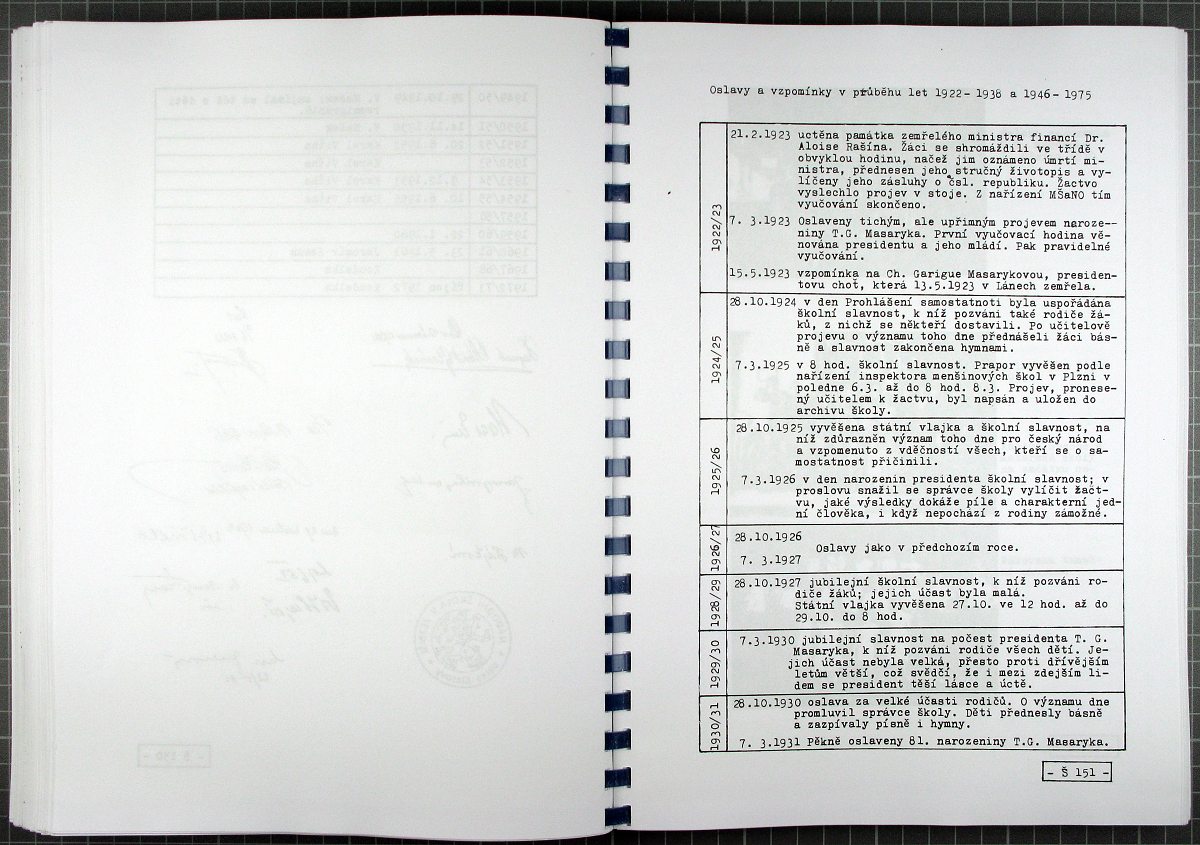 Oslavy a vzpomínky v průběhu let 1922- 1938 a 1946- 1975
1922/23
21.2.1923 uctěna památka zemřelého ministra financí Dr.
Aloise Rašína. Žáci se shromáždili ve třídě v
obvyklou hodinu, načež jim oznámeno úmrtí mi-
nistra, přednesen jeho stručný životopis a vy-
líčeny jeho zásluhy o čsl. republiku. Žactvo
vyslechlo projev v stoje. Z nařízení MŠaNO tím
vyučování skončeno.
7. 3.1923 Oslaveny tichým, ale upřimným projevem naroze--
niny T.G. Masaryka. První vyučovací hodina vě-
nována presidentu a jeho mládí. Pak pravidelné
vyučování.
15.5.1923 vzpomínka na Ch. Garigue Masarykovou, presiden-
tovu choť, která 13.5.1923 v Lánech zemřela.
1924/25
28.10.1924 v den Prohlášení samostatnoti byla uspořádána
školní slavnost, k níž pozváni také rodiče žá-
ků, z nichž se někteří dostavili. Po učitelově
projevu o významu toho dne přednášeli žáci bás-
ně a slavnost zakončena hymnami.
7.3.1925 v 8 hod. školní slavnost. Prapor vyvěšen podle
nařízení inspektora menšinových škol v Plzni v
poledne 6.3. až do 8 hod. 8.3. Projev, pronese-
ný učitelem k žactvu, byl napsán a uložen do
archivu školy.
1925/26
28.10.1925 vyvěšena státní vlajka a školní slavnost, na
níž zdůrazněn význam toho dne pro český národ
a vzpomenuto z vděčností všech, kteří se o sa-
mostatnost přičinili.
7.3.1926 v den narozenin presidenta školní slavnost; v
proslovu snažil se správce školy vylíčit žact-
vu, jaké výsledky dokáže píle a charakterní jed-
ní člověka, i když nepochází z rodiny zámožné.
1926/27
28.10.1926
Oslavy jako v předchozím roce.
7. 3.1927
1928/29
28.10.1927 jubilejní školní slavnost, k níž pozváni ro-
diče žáků; jejich účast byla malá.
Státní vlajka vyvěšena 27.10. ve 12 hod. až do
29.10. do 8 hod.
1929/30
7.3.1930 jubilejní slavnost na počest presidenta T. G.
Masaryka, k níž pozváni rodiče všech dětí. Je-
jich účast nebyla velká, přesto proti dřívějším
letům větší, což svědčí, že i mezi zdejším li-
dem se president těší lásce a úctě.
1930/31
28.10.1930 oslava za velké účasti rodičů. O významu dne
promluvil správce školy. Děti přednesly básně
a zazpívaly písně i hymny.
7. 3.1931 Pěkně oslaveny 81. narozeniny T.G. Masaryka.
- Š 151 -